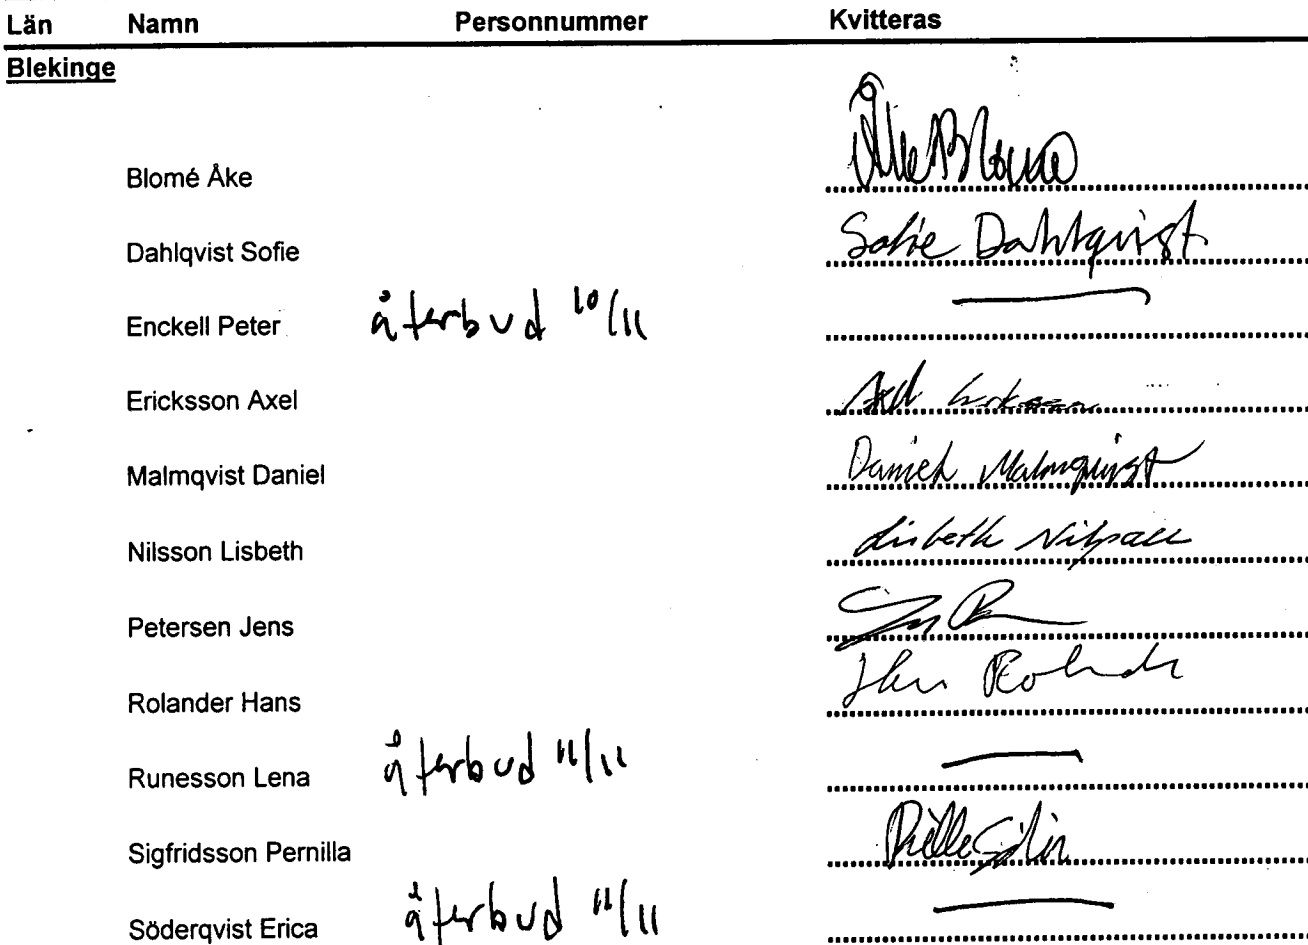 Län Namn Personnummer Kvitteras
Blekinge
Blomé Åke Åke Blomé
Dahlqvist Sofie Sofie Dahlqvist
Enckell Peter återbud 10/11
Ericksson Axel Axel
Malmqvist Daniel Daniel Malmqvist
Nilsson Lisbeth Lisbeth Nilsson
Petersen Jens
Rolander Hans
Runesson Lena återbud 11/11
Sigfridsson Pernilla
Söderqvist Erica återbud 11/11